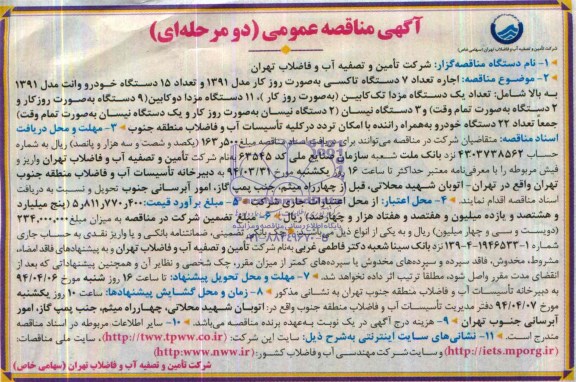 آگهی مناقصه عمومی (دو مرحله‌ای)
شرکت تأمین و تصفیه آب و فاضلاب تهران (سهامی خاص)
۱- نام دستگاه مناقصه‌گزار: شرکت تأمین و تصفیه آب و فاضلاب تهران
۲- موضوع مناقصه: اجاره تعداد ۷ دستگاه تاکسی به‌صورت روز کار مدل ۱۳۹۱ و تعداد ۱۵ دستگاه خودرو وانت مدل ۱۳۹۱
به بالا شامل: تعداد یک دستگاه مزدا تک‌کابین (به‌صورت روز کار)، ۱۱ دستگاه مزدا دوکابین (۹ دستگاه به‌صورت روزکار و
۲ دستگاه به‌صورت تمام وقت) و ۳ دستگاه نیسان (۲ دستگاه نیسان به‌صورت روز کار و یک دستگاه نیسان به‌صورت تمام وقت)
جمعاً تعداد ۲۲ دستگاه خودرو به‌همراه راننده با امکان تردد در کلیه تأسیسات آب و فاضلاب منطقه جنوب ۳- مهلت و محل دریافت
اسناد مناقصه: متقاضیان شرکت در مناقصه می‌توانند برای دریافت اسناد مناقصه مبلغ ۱۶۳٬۵۰۰ (یکصد و شصت و سه هزار و پانصد) ریال به شماره
حساب ۴۳۰۲۷۳۸۵۶۲ نزد بانک ملت شعبه سازمان منابع ملی کد ۶۳۵۴۵ به‌نام شرکت تأمین و تصفیه آب و فاضلاب تهران واریز و
فیش مربوطه را با معرفی‌نامه معتبر حداکثر تا ساعت ۱۶ روز یکشنبه مورخ ۹۴/۰۳/۳۱ به دبیرخانه تأسیسات آب و فاضلاب منطقه جنوب
تهران واقع در تهران - اتوبان شهید محلاتی، قبل از چهارراه میثم، جنب پمپ گاز، امور آبرسانی جنوب تحویل و نسبت به دریافت
اسناد مناقصه اقدام نمایند. ۴- محل اعتبار: از محل اعتبارات جاری شرکت ۵- مبلغ برآورد قیمت: ۵٬۸۱۱٬۷۷۰٬۴۰۰ (پنج میلیارد
و هشتصد و یازده میلیون و هفتصد و هفتاد هزار و چهارصد) ریال ۶- مبلغ تضمین شرکت در مناقصه به میزان مبلغ ۲۳۴٬۰۰۰٬۰۰۰
(دویست و سی و چهار میلیون) ریال و به یکی از انواع ذیل می‌باشد: چک بانکی تضمینی، ضمانتنامه بانکی و یا واریز نقدی به حساب جاری
شماره ۱-۱۹۴۶۵۳۳-۴-۱۳۹ نزد بانک سینا شعبه دکتر فاطمی غربی به‌نام شرکت تأمین و تصفیه آب و فاضلاب تهران و به پیشنهادهای فاقد امضاء،
مشروط، مخدوش، فاقد سپرده و سپرده‌های مخدوش یا سپرده‌های کمتر از میزان مقرر، چک شخصی و نظایر آن و همچنین پیشنهاداتی که بعد از
انقضای مدت مقرر واصل شود، مطلقاً ترتیب اثر داده نخواهد شد. ۷- مهلت و محل تحویل پیشنهاد: تا ساعت ۱۶ روز شنبه مورخ ۹۴/۰۴/۰۶
به دبیرخانه تأسیسات آب و فاضلاب منطقه جنوب تهران به نشانی مذکور ۸- زمان و محل گشایش پیشنهادها: ساعت ۱۰ روز یکشنبه
مورخ ۹۴/۰۴/۰۷ دفتر مدیریت تأسیسات آب و فاضلاب منطقه جنوب واقع در: اتوبان شهید محلاتی، چهارراه میثم، جنب پمپ گاز، امور
آبرسانی جنوب تهران ۹- هزینه درج آگهی در یک نوبت به‌عهده برنده مناقصه می‌باشد. ۱۰- سایر اطلاعات مربوطه در اسناد مناقصه
مندرج است. ۱۱- نشانی‌های سایت اینترنتی به‌شرح ذیل: سایت این شرکت: (http://tww.tpww.co.ir)، سایت ملی مناقصات:
(http://iets.mporg.ir) و سایت شرکت مهندسی آب و فاضلاب کشور: (http:www.nww.ir)
شرکت تأمین و تصفیه آب و فاضلاب تهران (سهامی خاص)